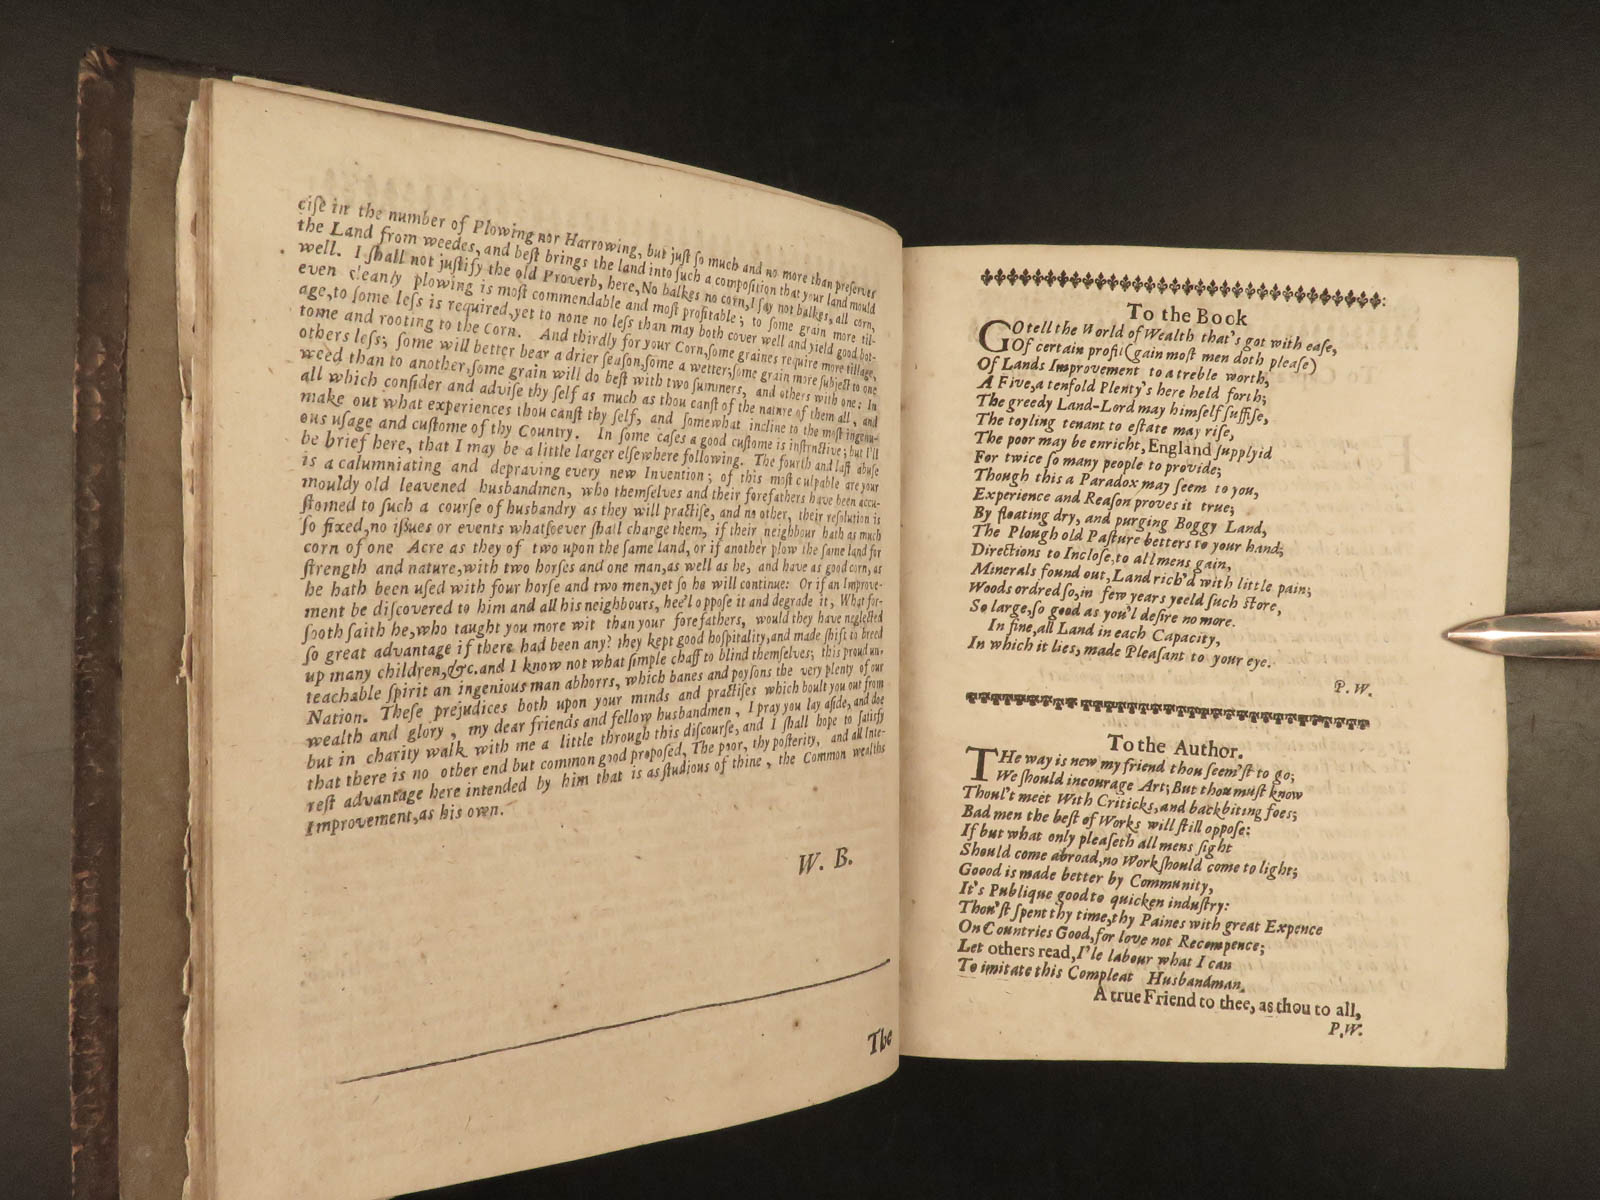 ciſe in the number of Plowing nor Harrowing, but juſt ſo much and no more than preſerves
the Land from weedes, and beſt brings the land into ſuch a compoſition that your land mould
well. I ſhall not juſtify the old Proverb, here, No balkes no corn, I ſay not balkes, all corn,
even cleanly plowing is moſt commendable and moſt profitable; to ſome grain more til-
age, to ſome leſs is required, yet to none no leſs than may both cover well and yield good bot-
tome and rooting to the Corn. And thirdly for your Corn, ſome graines require more tillage,
others leſs; ſome will better bear a drier ſeaſon, ſome a wetter; ſome grain more ſubject to one
weed than to another, ſome grain will do beſt with two ſummers, and others with one: In
all which conſider and adviſe thy ſelf as much as thou canſt of the nature of them all, and
make out what experiences thou canſt thy ſelf, and ſomewhat incline to the moſt ingenu-
ous uſage and cuſtome of thy Country. In ſome caſes a good cuſtome is inſtructive; but I'll
be brief here, that I may be a little larger elſewhere following. The fourth and laſt abuſe
is a calumniating and depraving every new Invention; of this moſt culpable are your
mouldy old leavened husbandmen, who themſelves and their forefathers have been accu-
ſtomed to ſuch a courſe of husbandry as they will practiſe, and no other, their reſolution is
ſo fixed, no iſſues or events whatſoever ſhall change them, if their neighbour hath as much
corn of one Acre as they of two upon the ſame land, or if another plow the ſame land for
ſtrength and nature, with two horſes and one man, as well as he, and have as good corn, as
he hath been uſed with four horſe and two men, yet ſo he will continue: Or if an Improve-
ment be diſcovered to him and all his neighbours, hee'l oppoſe it and degrade it, What for-
ſooth ſaith he, who taught you more wit than your forefathers, would they have neglected
ſo great advantage if there had been any? they kept good hoſpitality, and made ſhift to breed
up many children, &c. and I know not what ſimple chaff to blind themſelves; this proud un-
teachable ſpirit an ingenious man abhorrs, which banes and poyſons the very plenty of our
Nation. Theſe prejudices both upon your minds and practiſes which boult you out from
wealth and glory, my dear friends and fellow husbandmen, I pray you lay aſide, and doe
but in charity walk with me a little through this diſcourſe, and I ſhall hope to ſatisfy
that there is no other end but common good propoſed, The poor, thy poſterity, and all Inte-
reſt advantage here intended by him that is as ſtudious of thine, the Common wealths
Improvement, as his own.
W. B.
The
To the Book
GO tell the World of Wealth that's got with eaſe,
Of certain profit (gain moſt men doth pleaſe)
Of Lands Improvement to a treble worth,
A Five, a tenfold Plenty's here held forth;
The greedy Land-Lord may himſelf ſuffiſe,
The toyling tenant to eſtate may riſe,
The poor may be enricht, England ſupplyid
For twice ſo many people to provide;
Though this a Paradox may ſeem to you,
Experience and Reaſon proves it true;
By floating dry, and purging Boggy Land,
The Plough old Paſture betters to your hand;
Directions to Incloſe, to all mens gain,
Minerals found out, Land rich'd with little pain;
Woods ordred ſo, in few years yeeld ſuch ſtore,
So large, ſo good as you'l deſire no more.
In fine, all Land in each Capacity,
In which it lies, made Pleaſant to your eye.
P. W.
To the Author.
THe way is new my friend thou ſeem'ſt to go;
We ſhould incourage Art; But thou muſt know
Thoul't meet With Criticks, and backbiting foes;
Bad men the beſt of Works will ſtill oppoſe:
If but what only pleaſeth all mens ſight
Should come abroad, no Work ſhould come to light;
Goood is made better by Community,
It's Publique good to quicken induſtry:
Thou'ſt ſpent thy time, thy Paines with great Expence
On Countries Good, for love not Recompence;
Let others read, I'le labour what I can
To imitate this Compleat Husbandman.
A true Friend to thee, as thou to all,
P. W.